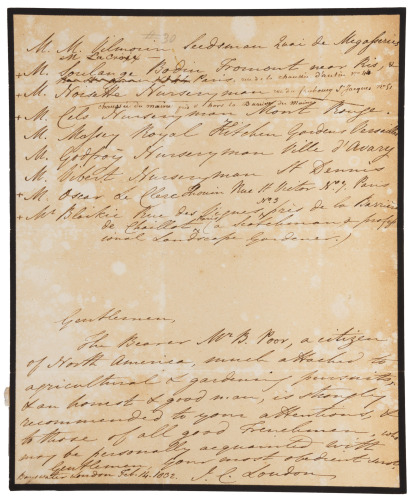 # 30
M. M. Vilmorin Seedsman Quai de Megisserie
M Lacroix
+ M. Soulange Bodin Fromont near Ris, &
Paris, rue de la chaussée d'antin No 40
+ M. Noisette Nurseryman rue du faubourg St Jacques No 51
+ M. Cels Nurseryman Mont Rouge.
M. Massey Royal Kitchen Gardens Versailles
M. Godfroy Nurseryman Ville d'Avary
M. Vibert Nurseryman St Dennis
+ M. Oscar Le Clerc Thouin Rue St Victor Paris
No 3
+ Mr Blaikie Rue des Vignes, près de la Barrière
de Chaillot (a Scotchman & profess
ional Landscape Gardener.)
Gentlemen,
The Bearer Mr B. Poor, a citizen
of North America, much attached to
agricultural & gardening pursuits,
& an honest & good man, is strongly
recommended to your attentions, &
to those of all good Frenchmen who
may be personally acquainted with
Gentlemen your most obedient servt
Bayswater London Feb. 14. 1832. J. C. Loudon